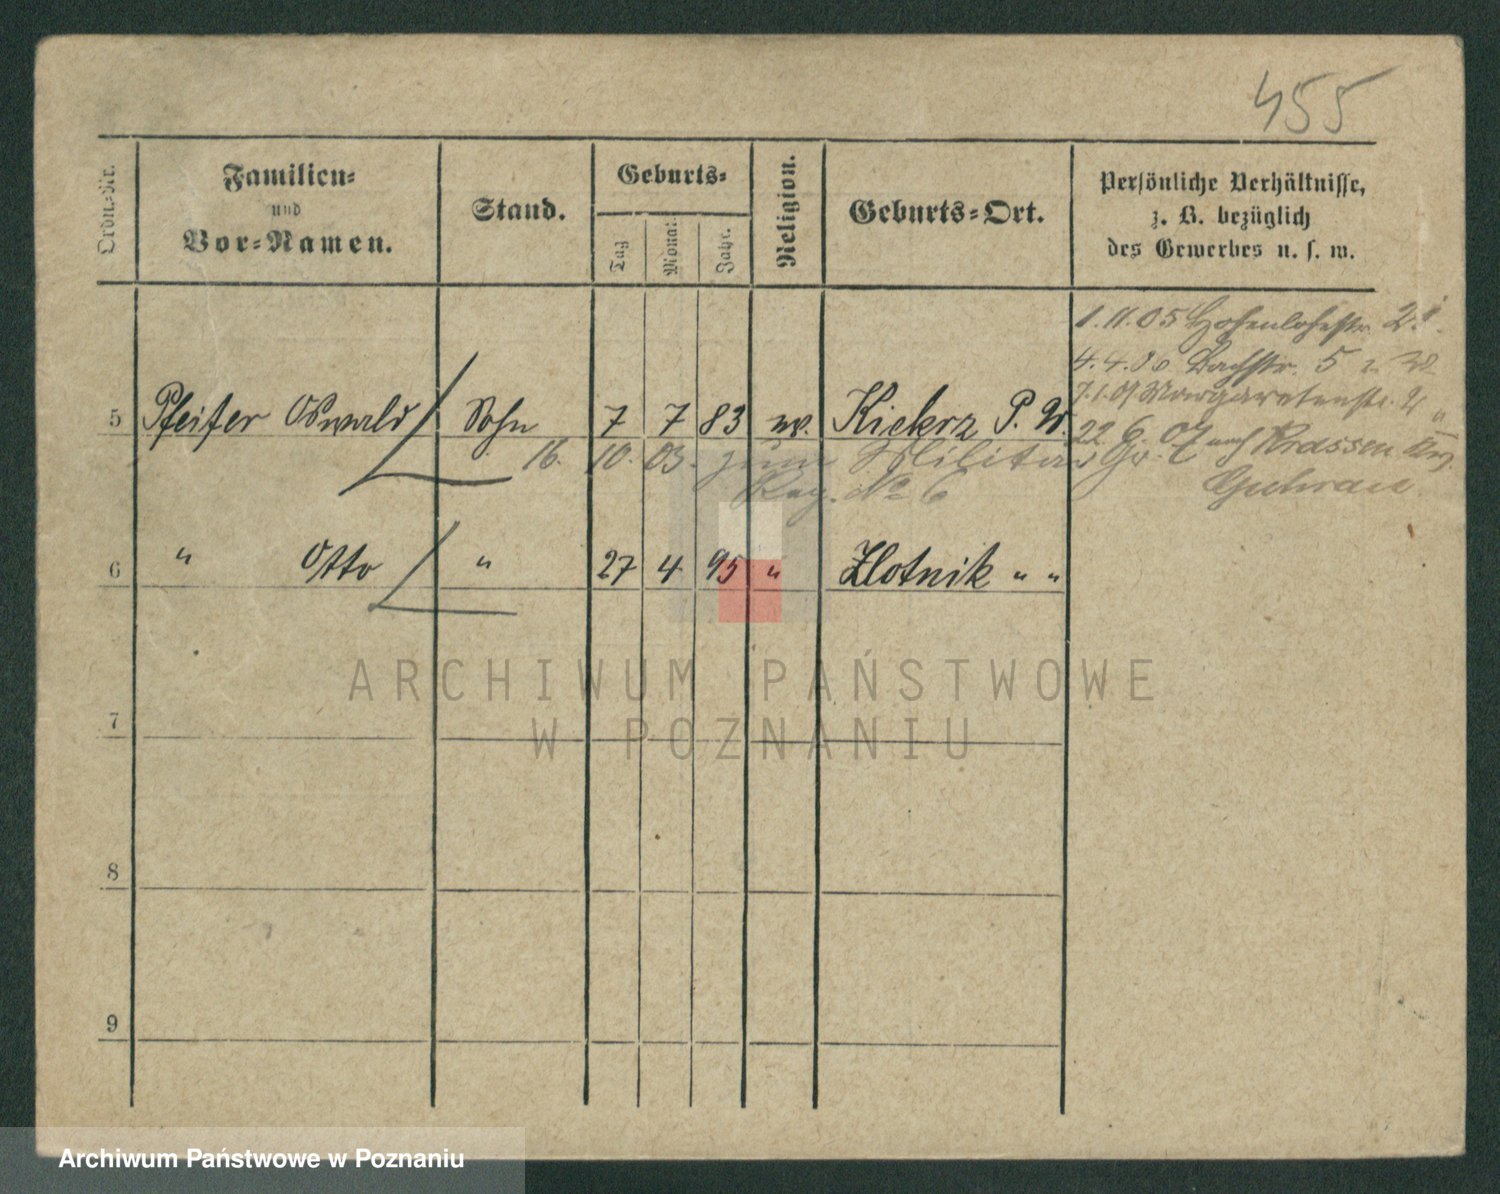 455
Ordn.-Nr.
Familien-
und
Vor-Namen.
Stand.
Geburts-
Tag
Monat
Jahr.
Religion.
Geburts-Ort.
Persönliche Verhältnisse,
z. B. bezüglich
des Gewerbes u. s. w.
1.11.05 Hohenlohestr. 2.
4.4.06 Bachstr. 5
7.1.07 Margaretenstr.
22. 6. 07 nach
Guhrau.
5 Pfeifer Oswald Sohn 7 7 83 ev. Kiekrz P. W.
16. 10. 03. zum Militär
Reg. No 6
6 " Otto " 27 4 95 " Zlotnik " "
7
8
9
ARCHIWUM PAŃSTWOWE
W POZNANIU
Archiwum Państwowe w Poznaniu